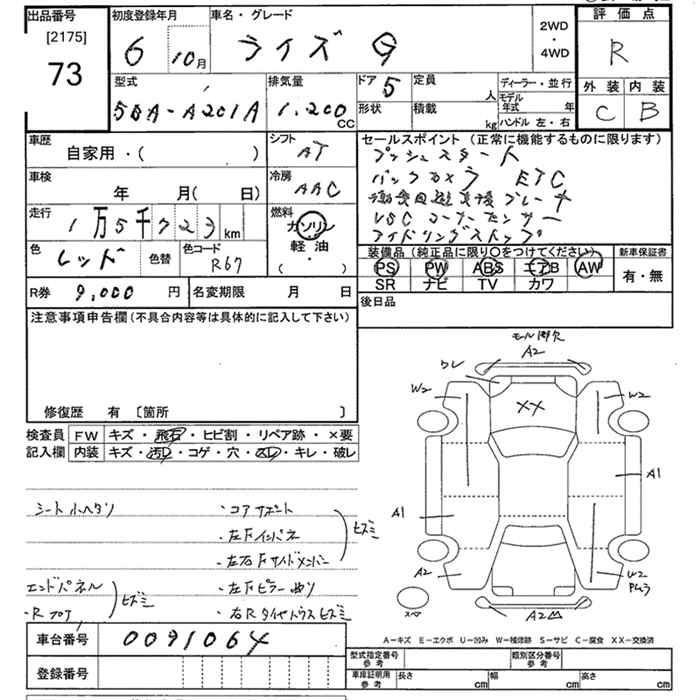 出品番号
[2175]
73
初度登録年月
6 10月
車名・グレード
ライズ G
2WD
・
4WD
評価点
R
外装 内装
C B
型式
5BA-A201A
排気量
1,200 CC
ドア 5
形状
定員 人
積載 kg
ディーラー・並行
モデル年式 年
ハンドル 左・右
車歴
自家用・( )
シフト
AT
車検
年 月( 日)
冷房
AAC
走行
1万5千723km
燃料
ガソリン
軽油
( ・ )
色
レッド
色替
色コード
R67
セールスポイント (正常に機能するものに限ります)
プッシュスタート
バックカメラ ETC
VSC コーナーセンサー
アイドリングストップ
装備品 (純正品に限り○をつけてください)
PS PW ABS エアB AW
SR ナビ TV カワ
新車保証書
有・無
R券 9,000 円
名変期限 月 日
後日品
注意事項申告欄 (不具合内容等は具体的に記入して下さい)
修復歴 有 〔箇所 〕
検査員
記入欄
FW キズ・飛石・ヒビ割・リペア跡・×要
内装 キズ・汚レ・コゲ・穴・スレ・キレ・破レ
シート小ヘタリ
・コアサポート
・左Fインパネ
・左右Fサイドメンバー
ヒズミ
エンドパネル
・Rフロア
ヒズミ
・左Fピラー曲り
・右Rタイヤハウスヒズミ
車台番号 0091064
登録番号
モール類欠
A2
ワレ
W2
W2
XX
A1
A1
A2
W2
A2
スペア
A-キズ E-エクボ U-凹み W-補修跡 S-サビ C-腐食 XX-交換済
型式指定番号
参考
類別区分番号
参考
車庫証明用
参考
長さ cm 幅 cm 高さ cm